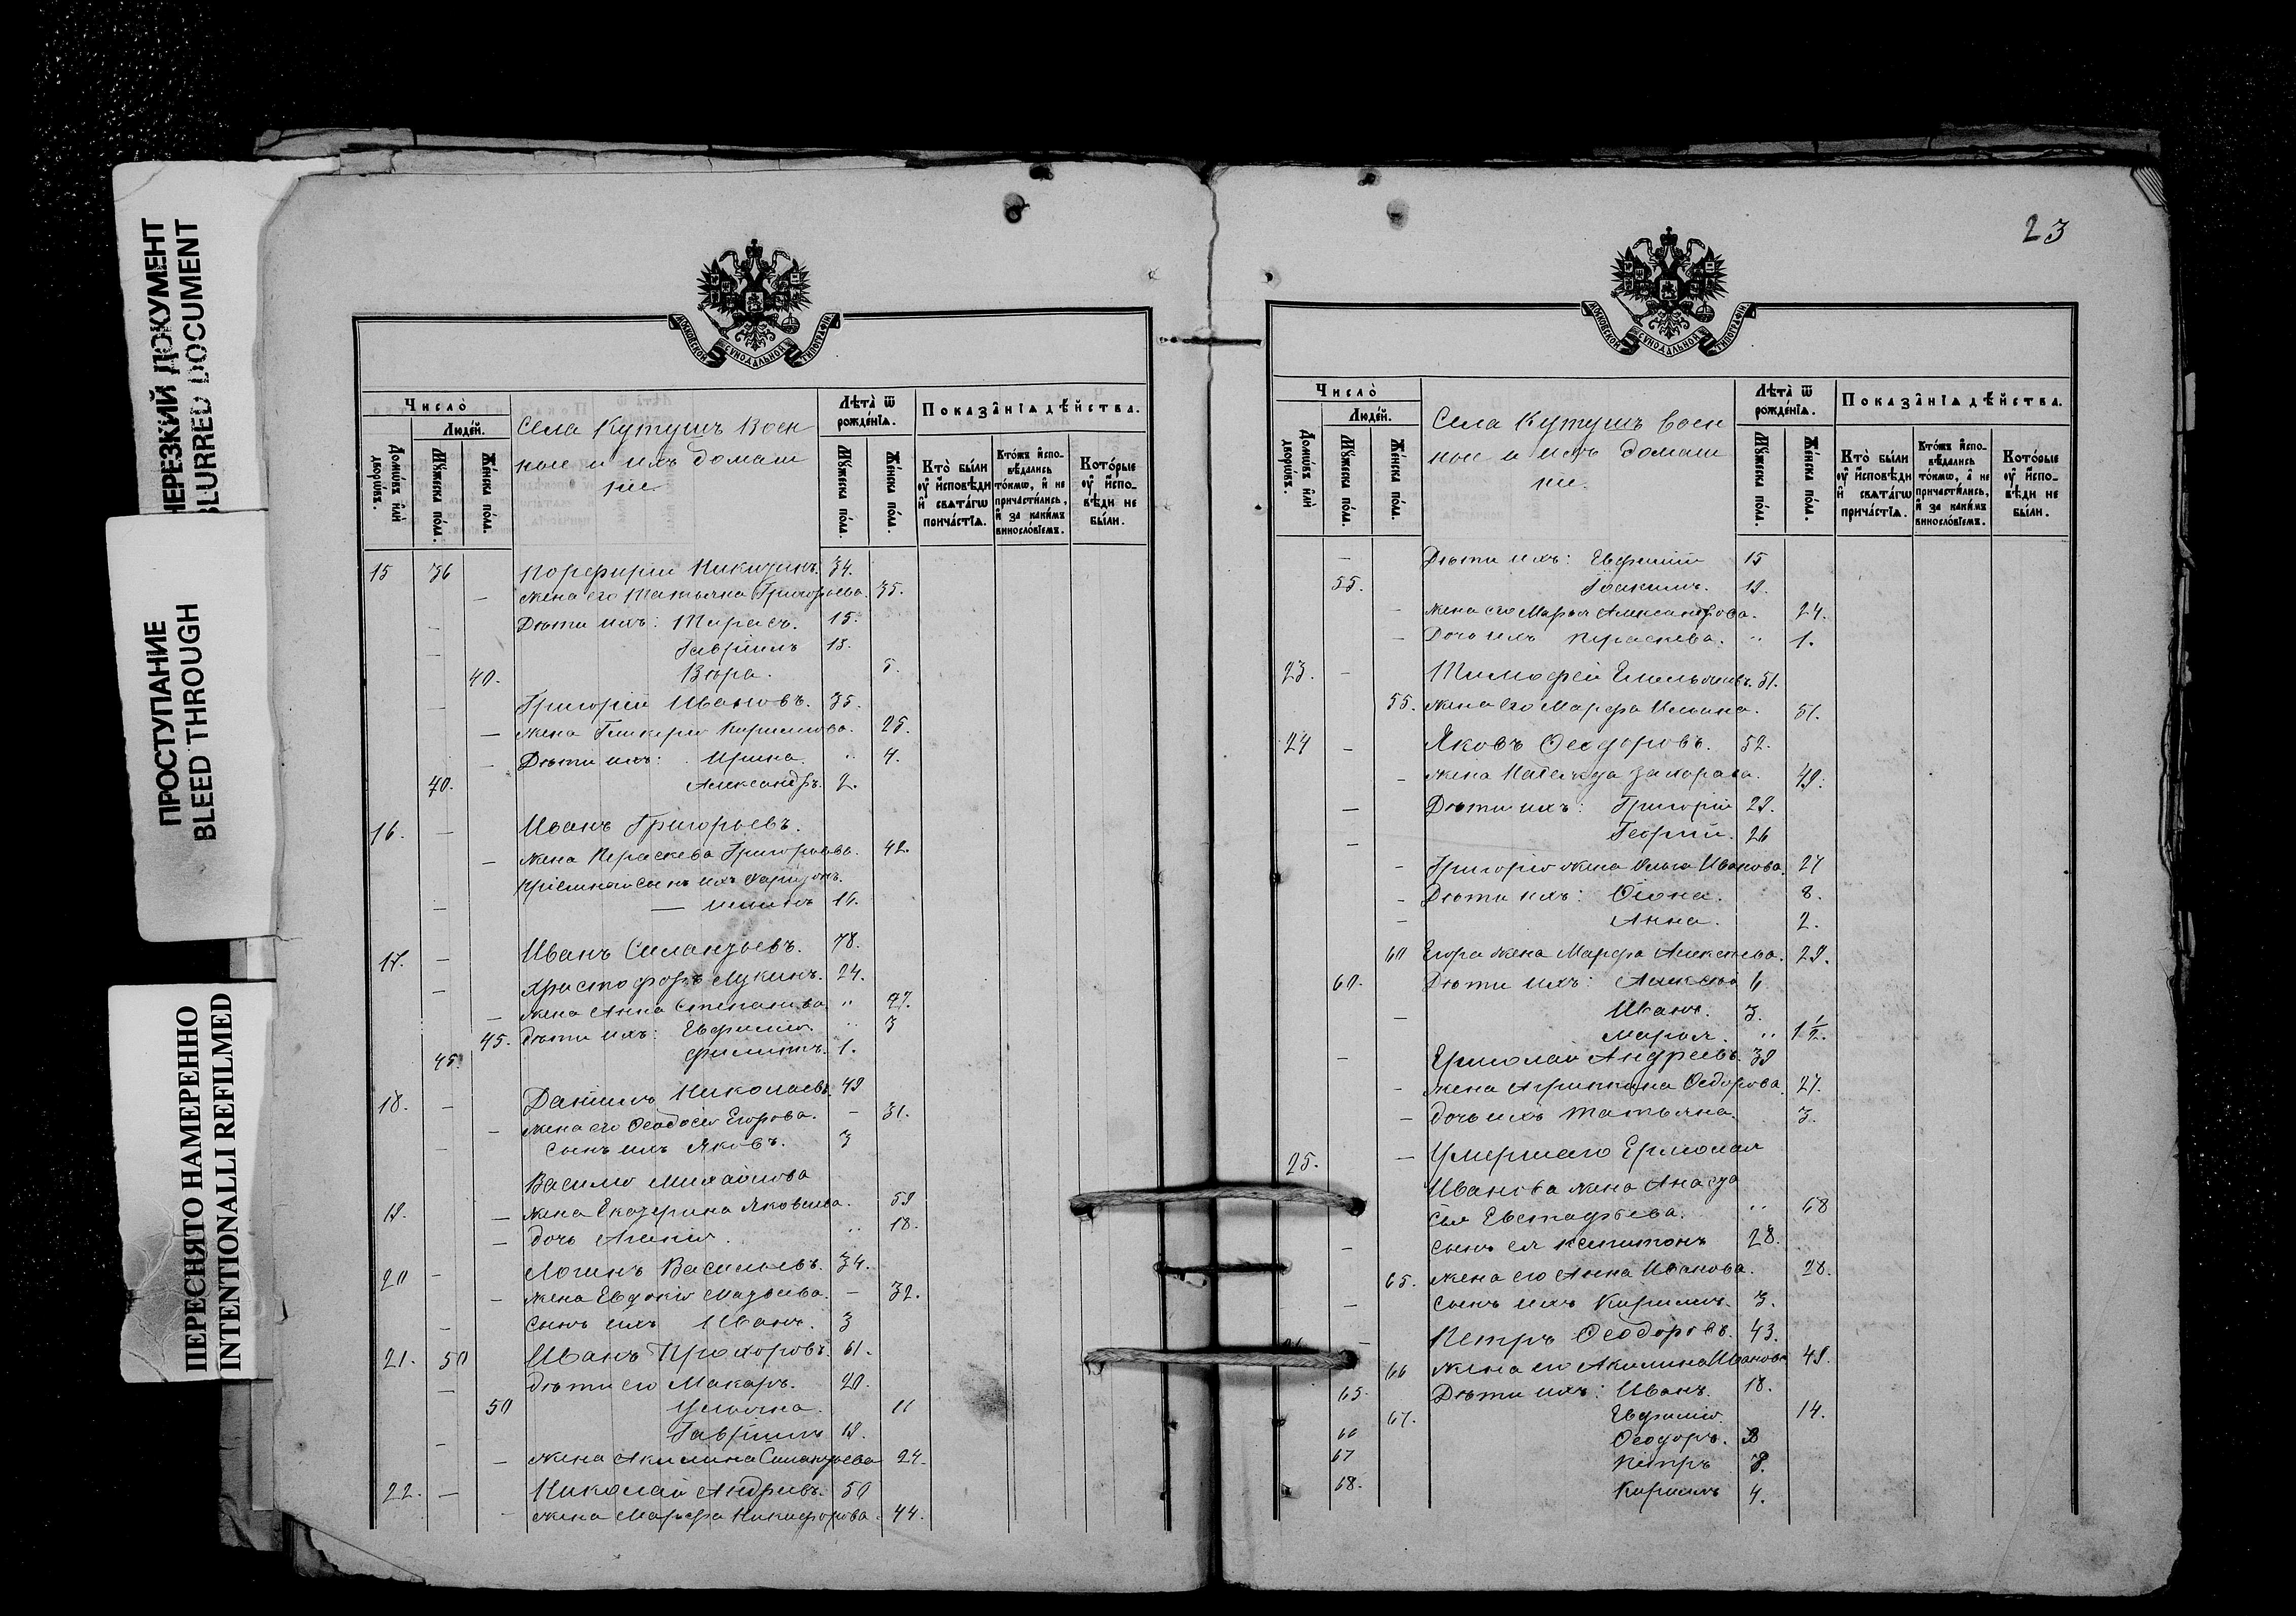 НЕРЕЗКИЙ ДОКУМЕНТ
BLURRED DOCUMENT
ПРОСТУПАНИЕ
BLEED THROUGH
ПЕРЕСНЯТО НАМЕРЕННО
INTENTIONALLI REFILMED
МОСКОВСКОЙ СѴНОДАЛЬНОЙ ТИПОГРАФІИ
Число̀
Люде́й.
Домѡ́въ и҆лѝ дворѡ́въ.
Мꙋ́жеска по́ла.
Же́нска по́ла.
Села Кутушъ Воен
ные и ихъ домаш
ніе
Лѣта̀ ѿ рожде́нїѧ.
Мꙋ́жеска по́ла.
Же́нска по́ла.
Показа̑нїѧ дѣ́йства.
Кто̀ бы́ли ᲂу҆ и҆сповѣ́ди и҆ свѧта́гѡ прича́стїѧ.
Кто́жъ и҆спо-вѣ́дались то́кмѡ, а҆ не причасти́лись, и҆ за каки́мъ виносло́вїемъ.
Кото́рые ᲂу҆ и҆спо-вѣ́ди не бы́ли.
15 36 Порфирій Никитинъ. 34.
— жена его Татьяна Григорьева. 35.
— Дѣти ихъ: Тарасъ. 15.
— Гавріилъ 13.
40. Вѣра. 5.
— Григорій Ивановъ. 35.
— жена Гликерія Кирилова. 25.
— Дѣти ихъ: Ирина. " 4.
40. Александръ. 2.
16. — Иванъ Григорьевъ.
— жена Параскева Григорьева. 42.
Пріемный сынъ ихъ Харитонъ.
— 16.
17. — Иванъ Силантьевъ. 78.
— Христофоръ Лукинъ. 24.
— жена Анна Степанова " 27.
45. дѣти ихъ: Евфимія. " 3
45. Филиппъ. 1.
18. — Даніилъ Николаевъ. 49
— жена его Ѳеодосія Егорова. — 31.
— сынъ ихъ Яковъ. 3
Василія Михайлова
19. — жена Екатерина Яковлева. 59
— дочь " 18.
20 — Логинъ Васильевъ. 34.
— жена Евдокія Матвѣева. — 32.
— сынъ ихъ Иванъ. 3
21. 50 Иванъ Прохоровъ. 61.
— дѣти его Макаръ. 20.
50 Ульяна. 11
— Гавріилъ 19.
— жена Акилина Силантьева 24.
22. — Николай Андреевъ. 50
— жена Марѳа Никифорова. 44.
23
МОСКОВСКОЙ СѴНОДАЛЬНОЙ ТИПОГРАФІИ
Число̀
Люде́й.
Домѡ́въ и҆лѝ дворѡ́въ.
Мꙋ́жеска по́ла.
Же́нска по́ла.
Села Кутушъ воен
ные и ихъ домаш
ніе.
Лѣта̀ ѿ рожде́нїѧ.
Мꙋ́жеска по́ла.
Же́нска по́ла.
Показа̑нїѧ дѣ́йства.
Кто̀ бы́ли ᲂу҆ и҆сповѣ́ди и҆ свѧта́гѡ прича́стїѧ.
Кто́жъ и҆спо-вѣ́дались то́кмѡ, а҆ не причасти́лись, и҆ за каки́мъ виносло́вїемъ.
Кото́рые ᲂу҆ и҆спо-вѣ́ди не бы́ли.
— Дѣти ихъ: Евфимій 15
55. Іоакимъ. 19.
— жена его Марья Александрова. 24.
— Дочь ихъ Параскева. " 1.
23. — Тимофей Емельяновъ. 51.
55. жена его Марфа Ильина. 51.
24 — Яковъ Ѳеодоровъ. 52.
— жена Надежда Захарова. 49.
— Дѣти ихъ: Григорій 29.
— Георгій. 26
— Григорія жена Ольга Иванова. 27
— Дѣти ихъ: 8.
— Анна. 2.
60 Егора жена Марфа Алексѣева. 29.
60. Дѣти ихъ: Алексѣй 6
— Иванъ. 3.
Марія. " 1 1/2.
— Ермолай Андреевъ. 39
— жена Агрипина Ѳедорова. 27.
— дочь ихъ Татьяна. 3.
25. — Умершаго Ермолая
Иванова жена Анаста
сія Евстафьева. " 68
— сынъ ея Капитонъ 28.
65. жена его Анна Иванова. 28.
— сынъ ихъ Кириллъ. 3.
— Петръ Ѳеодоровъ. 43.
66 жена его Акилина Иванова 49.
65. Дѣти ихъ: Иванъ. 18.
67. Евфимія. 14.
66 Ѳеодоръ.
67 Петръ 8.
68. Кириллъ 4.